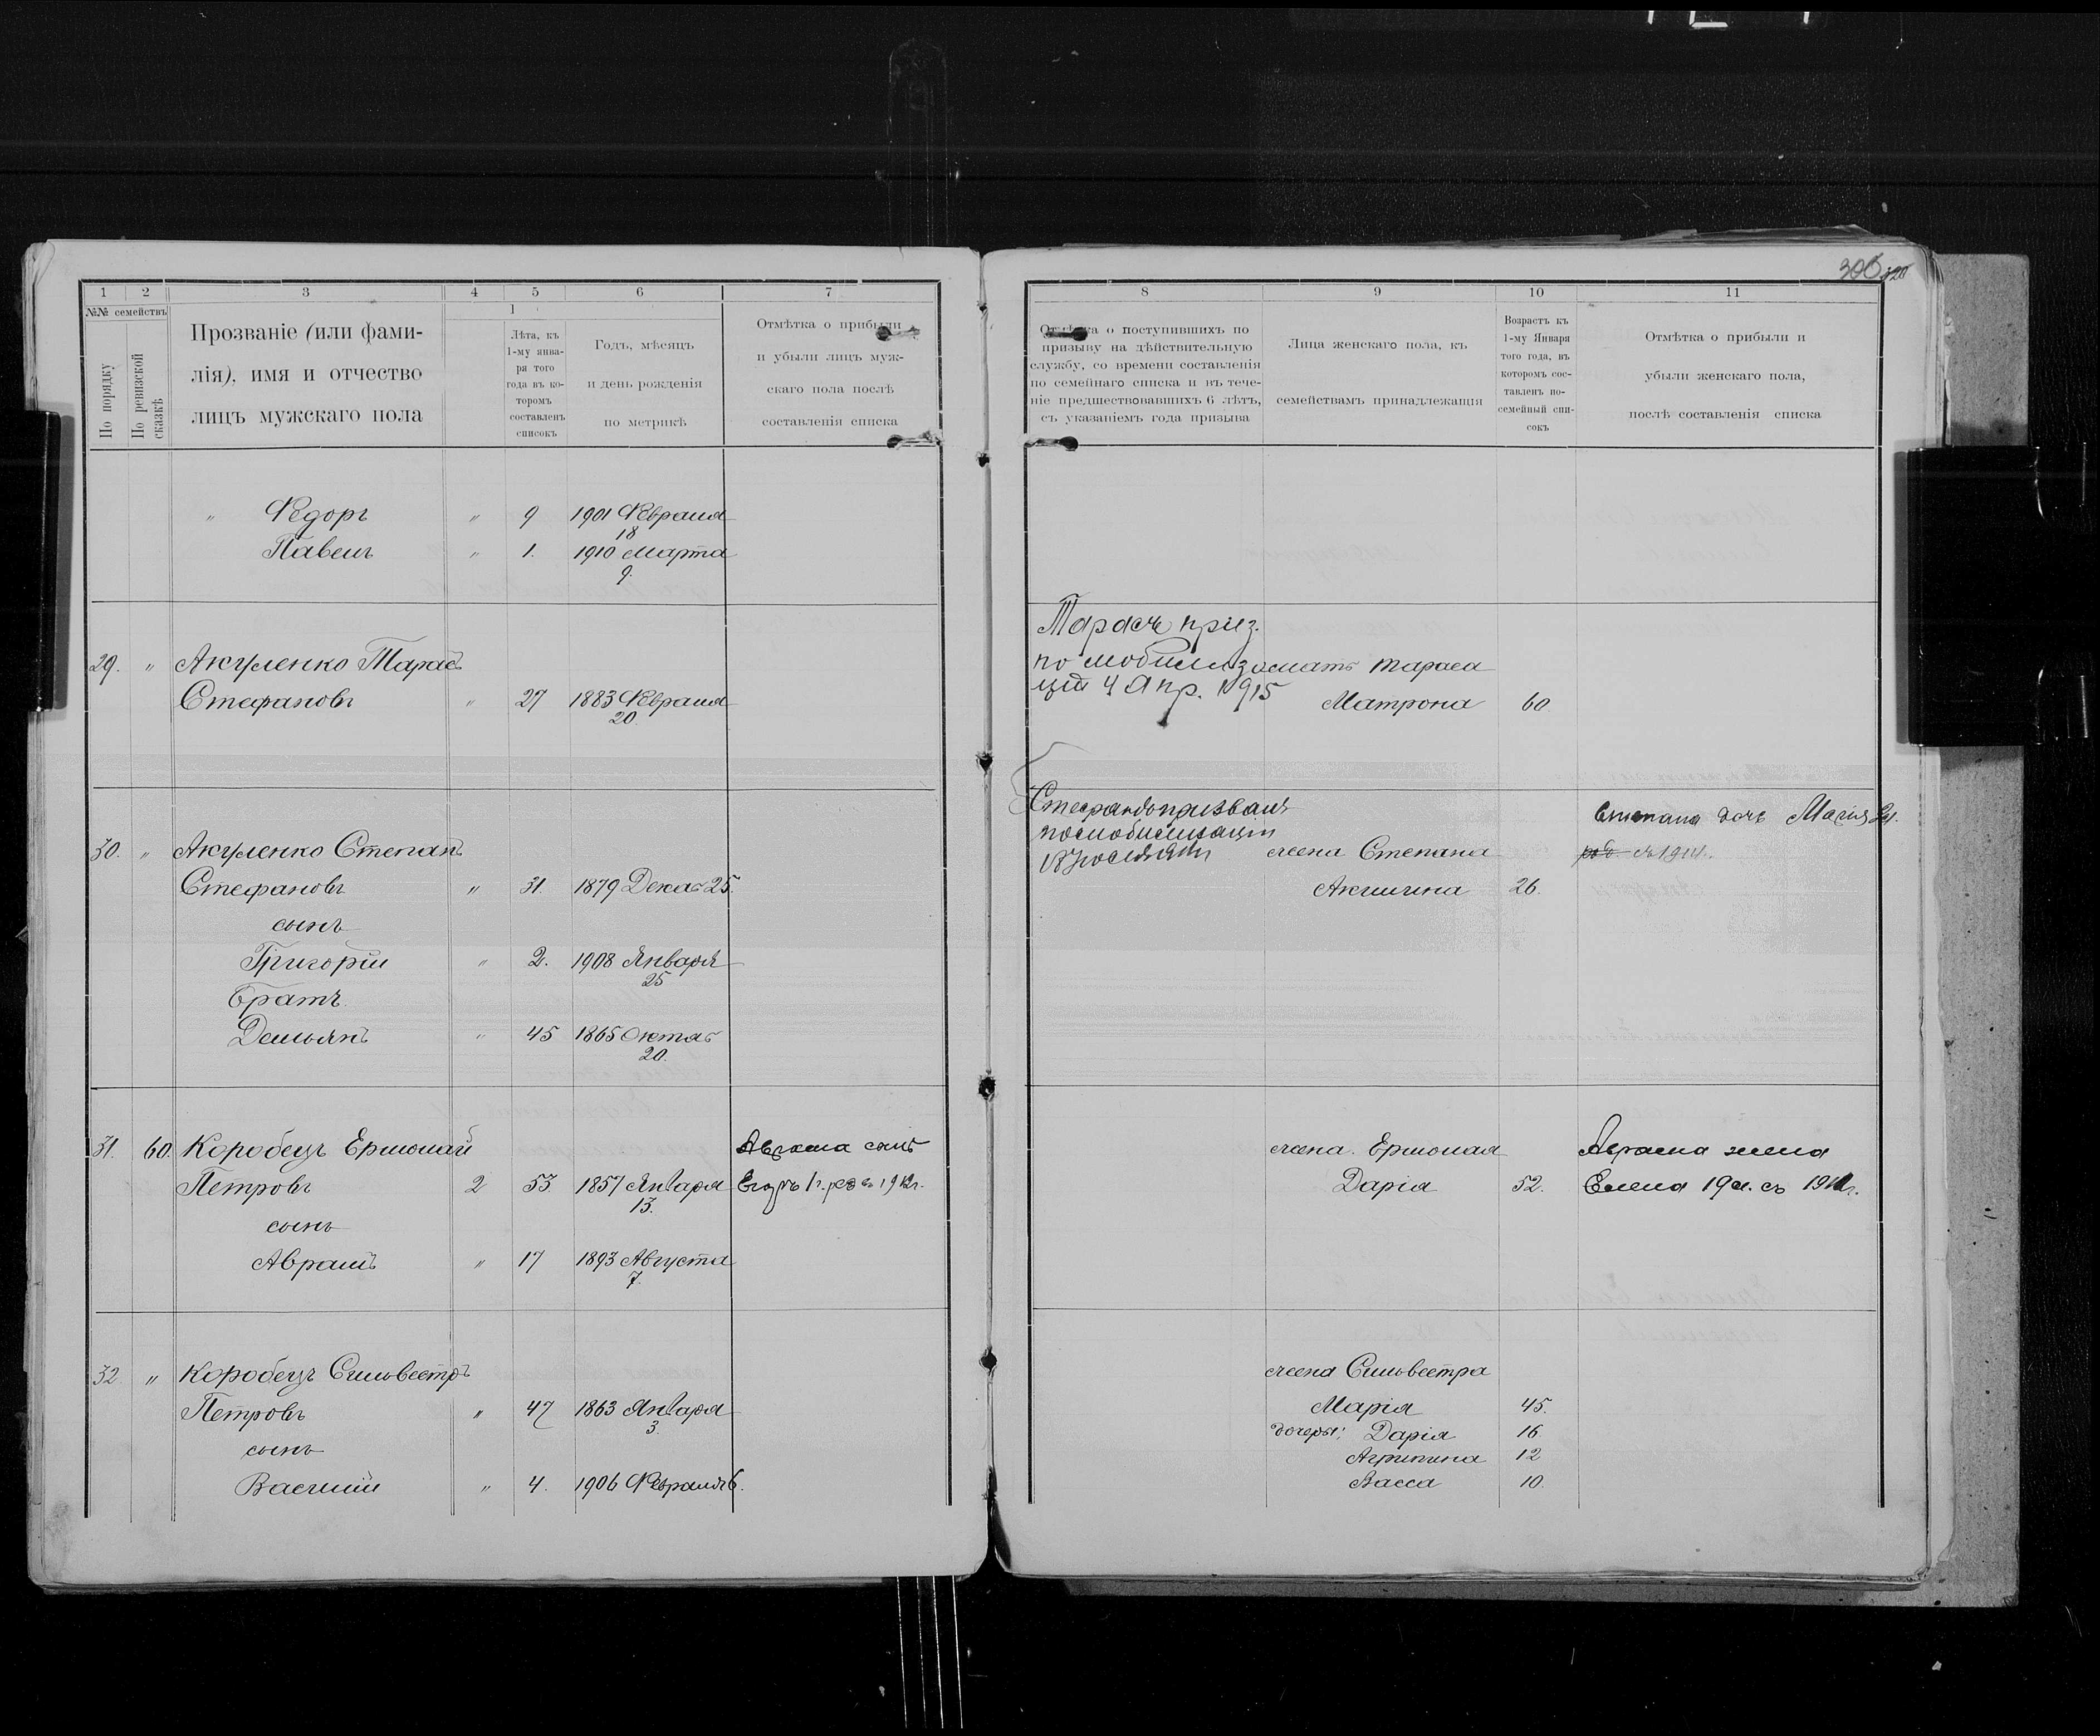 306
1 2 3 4 5 6 7
№№ семействъ
По порядку
По ревизской сказкѣ
Прозваніе (или фами-
лія), имя и отчество
лицъ мужскаго пола
1
Лѣта, къ
1-му янва-
ря того
года въ ко-
торомъ
составленъ
списокъ
Годъ, мѣсяцъ
и день рожденія
по метрикѣ
Отмѣтка о прибыли
и убыли лицъ муж-
скаго пола послѣ
составленія списка
" Ѳедоръ " 9 1901 Февраля
18
Павелъ " 1. 1910 Марта
9.
29. " Акуленко Тарасъ
Стефановъ " 27 1883 Февраля
20
30. " Акуленко Степанъ
Стефановъ " 31 1879 Декаб 25.
сынъ
Григорій " 2. 1908 Января
25
Братъ
Демьянъ " 45 1865 Октяб
20.
31. 60. Коробецъ Ермолай Аврама сынъ
Петровъ 2 53 1857 Января Егоръ 1 г. род въ 1912 г.
13.
сынъ
Аврамъ " 17 1893 Августа
7.
32 " Коробецъ Сильвестръ
Петровъ " 47 1863 Января
3.
сынъ
Василій " 4. 1906 Февраля 6.
8 9 10 11
Отмѣтка о поступившихъ по
призыву на дѣйствительную
службу, со времени составленія
по семейнаго списка и въ тече-
ніе предшествовавшихъ 6 лѣтъ,
съ указаніемъ года призыва
Лица женскаго пола, къ
семействамъ принадлежащія
Возрастъ къ
1-му Января
того года, въ
которомъ сос-
тавленъ по-
семейный спи-
сокъ
Отмѣтка о прибыли и
убыли женскаго пола,
послѣ составленія списка
Тарасъ приз.
по мобилиза мать Тараса
ціи 4 Апр. 1915 Матрона 60
призванъ Степана дочь Марія
по мобилизаціи
18 жена Степана съ 1914 г.
Акилина 26.
жена Ермолая Аврама жена
Дарія 52. Елена 19 л. съ
жена Сильвестра
Марія 45.
дочеры: Дарія 16.
Агрипина 12
Васса 10.